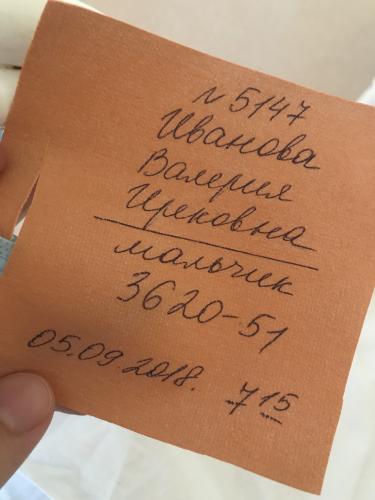 N 5147
Иванова
Валерия
Ирековна
мальчик
3620-51
05.09.2018. 7 15